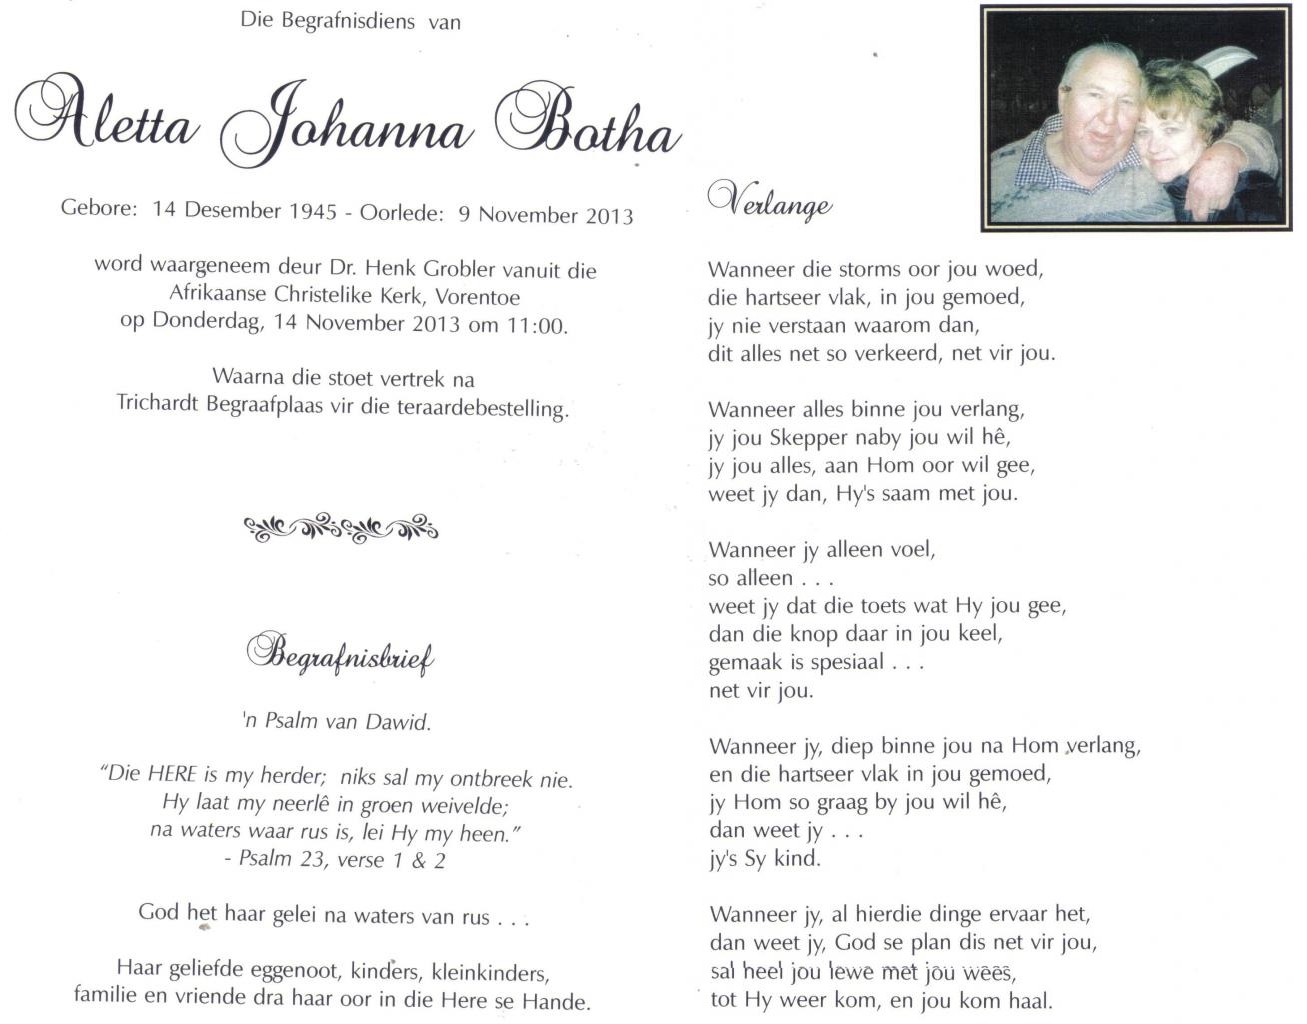 Die Begrafnisdiens van
Aletta Johanna Botha
Gebore: 14 Desember 1945 - Oorlede: 9 November 2013
word waargeneem deur Dr. Henk Grobler vanuit die
Afrikaanse Christelike Kerk, Vorentoe
op Donderdag, 14 November 2013 om 11:00.
Waarna die stoet vertrek na
Trichardt Begraafplaas vir die teraardebestelling.
Begrafnisbrief
'n Psalm van Dawid.
“Die HERE is my herder; niks sal my ontbreek nie.
Hy laat my neerlê in groen weivelde;
na waters waar rus is, lei Hy my heen.”
- Psalm 23, verse 1 & 2
God het haar gelei na waters van rus . . .
Haar geliefde eggenoot, kinders, kleinkinders,
familie en vriende dra haar oor in die Here se Hande.
Verlange
Wanneer die storms oor jou woed,
die hartseer vlak, in jou gemoed,
jy nie verstaan waarom dan,
dit alles net so verkeerd, net vir jou.
Wanneer alles binne jou verlang,
jy jou Skepper naby jou wil hê,
jy jou alles, aan Hom oor wil gee,
weet jy dan, Hy's saam met jou.
Wanneer jy alleen voel,
so alleen . . .
weet jy dat die toets wat Hy jou gee,
dan die knop daar in jou keel,
gemaak is spesiaal . . .
net vir jou.
Wanneer jy, diep binne jou na Hom verlang,
en die hartseer vlak in jou gemoed,
jy Hom so graag by jou wil hê,
dan weet jy . . .
jy's Sy kind.
Wanneer jy, al hierdie dinge ervaar het,
dan weet jy, God se plan dis net vir jou,
sal heel jou lewe met jou wees,
tot Hy weer kom, en jou kom haal.